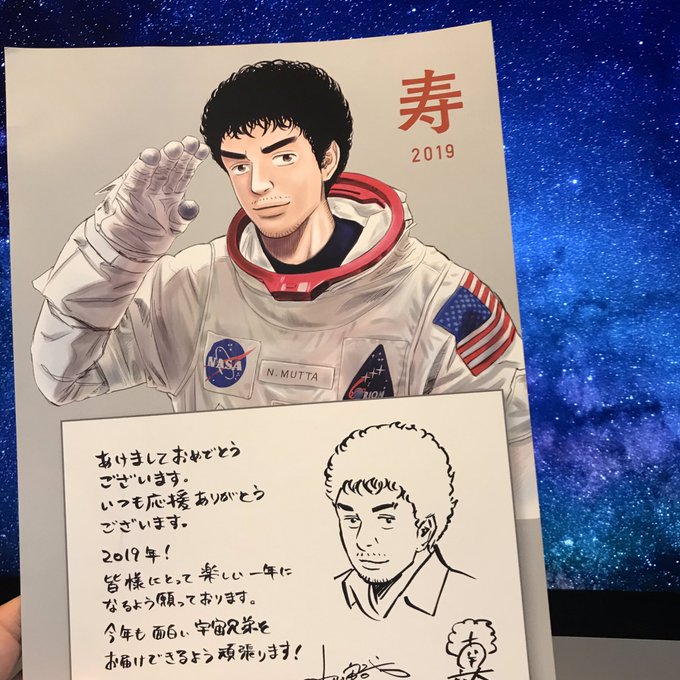 寿
2019
NASA
N. MUTTA
ORION
あけましておめでとう
ございます。
いつも応援ありがとう
ございます。
2019年!
皆様にとって楽しい一年に
なるよう願っております。
今年も面白い宇宙兄弟を
お届けできるよう頑張ります!